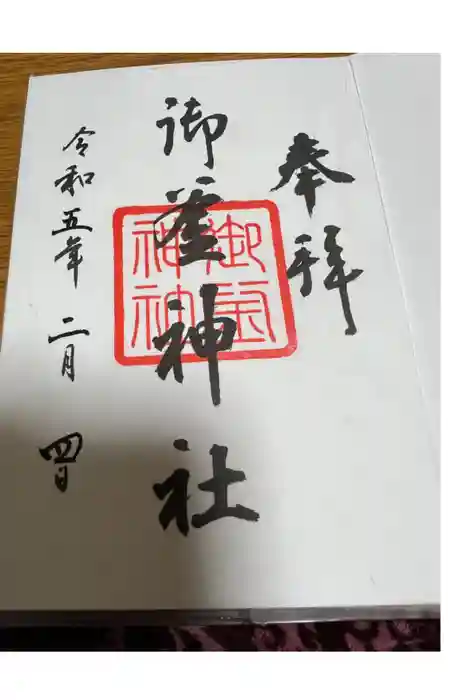 奉拝
御釜神社
令和五年 二月 四日
御釜神社